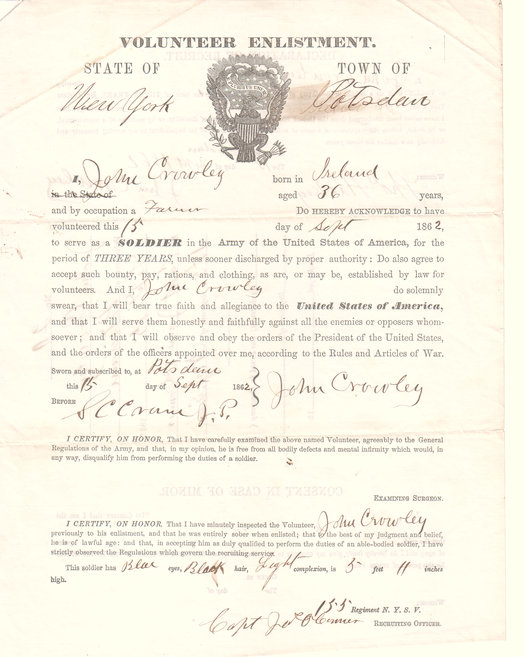 VOLUNTEER ENLISTMENT.
STATE OF TOWN OF
New York Potsdam
I, John Crowley born in Ireland
in the State of aged 36 years,
and by occupation a Farmer Do HEREBY ACKNOWLEDGE to have
volunteered this 15 day of Sept 1862,
to serve as a SOLDIER in the Army of the United States of America, for the
period of THREE YEARS, unless sooner discharged by proper authority: Do also agree to
accept such bounty, pay, rations, and clothing, as are, or may be, established by law for
volunteers. And I, John Crowley do solemnly
swear, that I will bear true faith and allegiance to the United States of America,
and that I will serve them honestly and faithfully against all the enemies or opposers whom-
soever; and that I will observe and obey the orders of the President of the United States,
and the orders of the officers appointed over me, according to the Rules and Articles of War.
Sworn and subscribed to, at Potsdam
this 15 day of Sept 1862 John Crowley
BEFORE
S C Crane J.P.
I CERTIFY, ON HONOR, That I have carefully examined the above named Volunteer, agreeably to the General
Regulations of the Army, and that, in my opinion, he is free from all bodily defects and mental infirmity which would, in
any way, disqualify him from performing the duties of a soldier.
CONSENT IN CASE OF MINOR
EXAMINING SURGEON.
I CERTIFY, ON HONOR, That I have minutely inspected the Volunteer, John Crowley
previously to his enlistment, and that he was entirely sober when enlisted; that to the best of my judgment and belief,
he is of lawful age; and that, in accepting him as duly qualified to perform the duties of an able-bodied soldier, I have
strictly observed the Regulations which govern the recruiting service.
This soldier has Blue eyes, Black hair, Light complexion, is 5 feet 11 inches
high.
155 Regiment N. Y. S. V.
Capt O'Connor RECRUITING OFFICER.